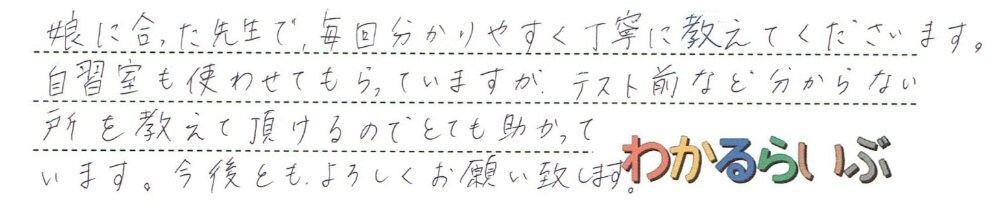 娘に合った先生で、毎回分かりやすく丁寧に教えてくださいます。
自習室も使わせてもらっていますが、テスト前など分からない
所を教えて頂けるのでとても助かって
います。今後とも、よろしくお願い致します。
わかるらいぶ